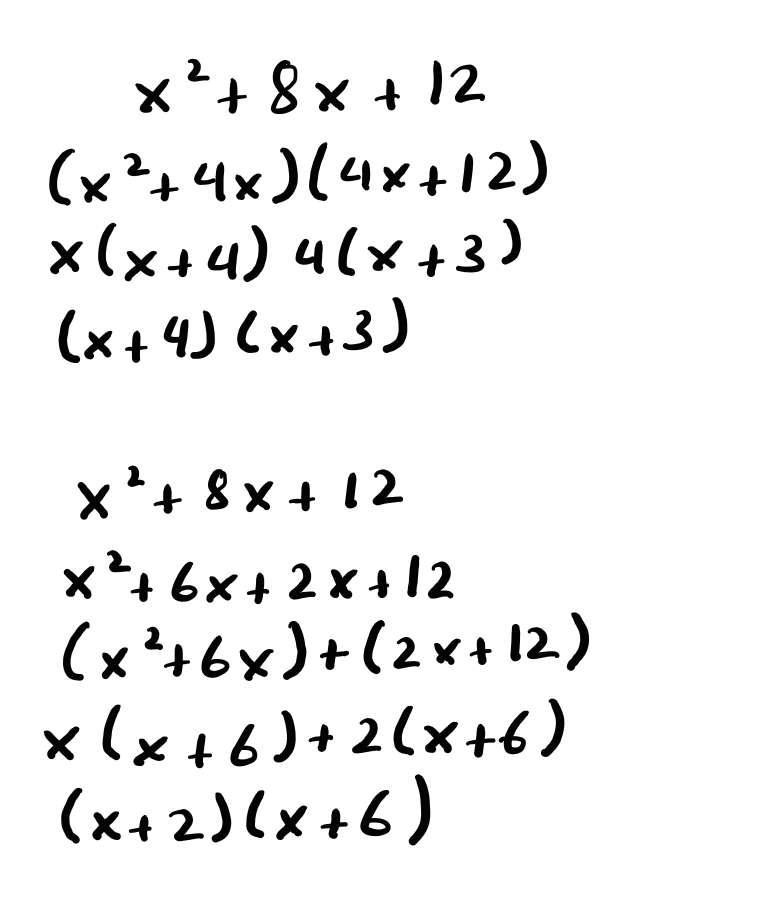 x² + 8x + 12
(x² + 4x)(4x + 12)
x(x + 4) 4(x + 3)
(x + 4)(x + 3)
x² + 8x + 12
x² + 6x + 2x + 12
(x² + 6x) + (2x + 12)
x(x + 6) + 2(x + 6)
(x + 2)(x + 6)